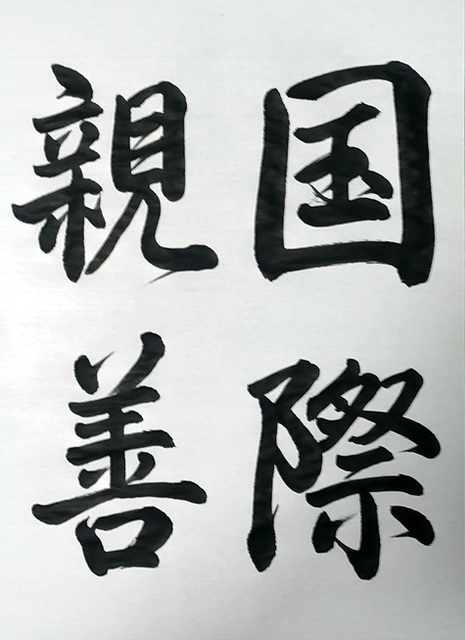 国際
親善